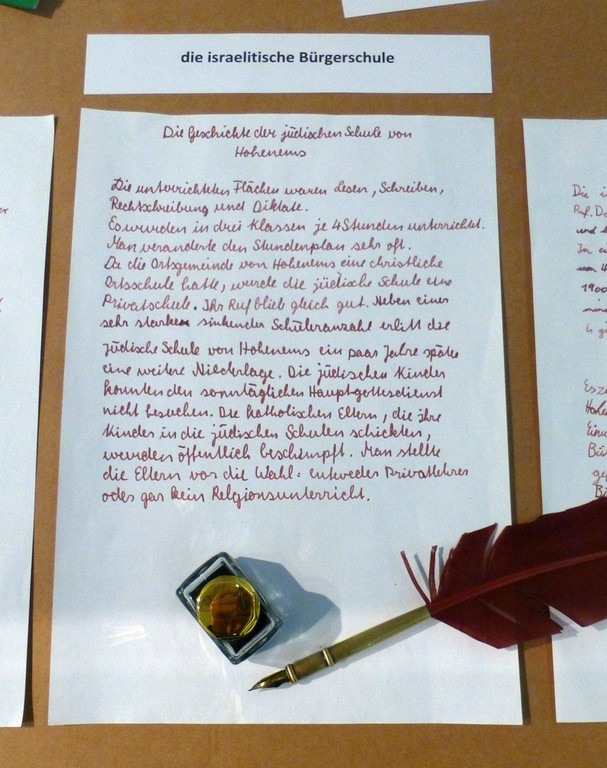 die israelitische Bürgerschule
Die Geschichte der jüdischen Schule von
Hohenems
Die unterrichteten Flächen waren Lesen, Schreiben,
Rechtschreibung und Diktate.
Es wurden in drei Klassen je 4 Stunden unterrichtet.
Man veranderte den Stundenplan sehr oft.
Da die Ortsgemeinde von Hohenems eine christliche
Ortsschule hatte, wurde die jüdische Schule eine
Privatschule. Ihr Ruf blieb gleich gut. Neben einer
sehr starken sinkender Schüleranzahl erlitt die
jüdische Schule von Hohenems ein paar Jahre später
eine weitere Niederlage. Die jüdischen Kinder
konnten den sonntäglichen Hauptgottesdienst
nicht besuchen. Die katholischen Eltern, die ihre
Kinder in die jüdischen Schulen schickten,
wurden öffentlich beschimpft. Man stellte
die Eltern vor die Wahl: entweder Privatlehrer
oder gar kein Religionsunterricht.
Die
und
1900